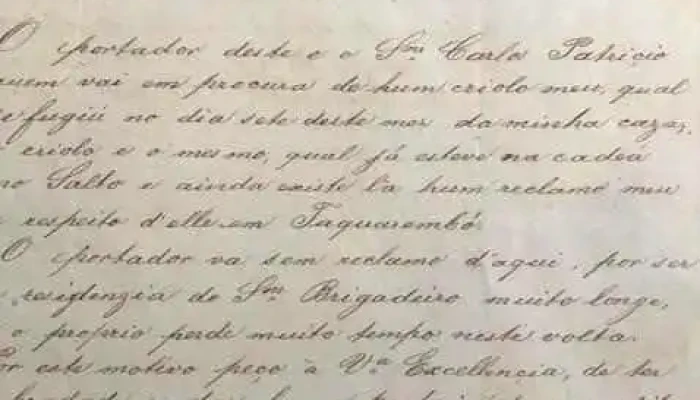 O portador deste e o Snr. Carlo Patricio
quem vai em procura de hum criolo meu, qual
se fugiú no dia sete deste mez da minha caza,
criolo e o mesmo, qual já esteve na cadea
no Salto e ainda existe là hum reclamo meu
a respeito d'elle em Taquarembó.
O portador va sem reclamo d'aqui, por ser
a rezidenzia de Snr. Brigadeiro muito longe,
e o proprio perde muito tempo neste volta.
Por este motivo peço à Va. Excellencia, de ter